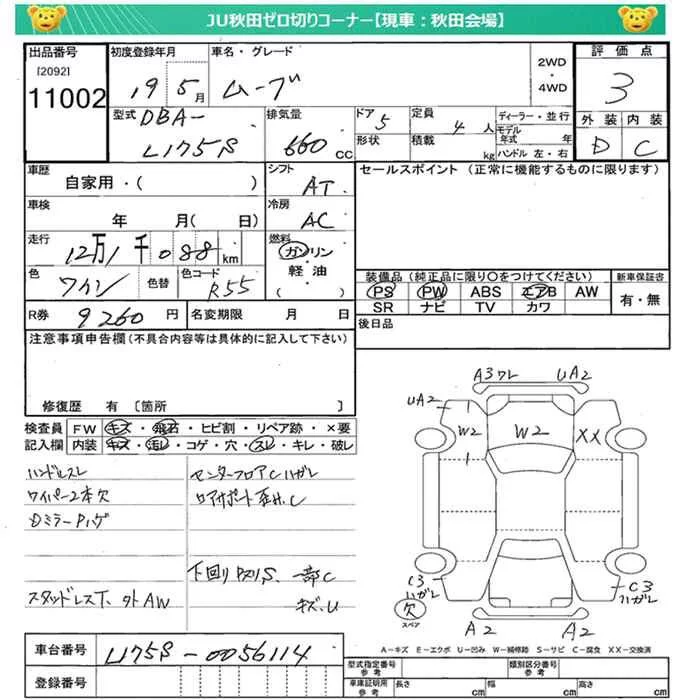 JU秋田ゼロ切りコーナー【現車:秋田会場】
出品番号
[2092]
11002
初度登録年月
19 5月
車名・グレード
ムーブ
2WD
・
4WD
評価点
3
外装 内装
D C
型式
DBA-
L175S
排気量
660 CC
ドア
5
形状
定員
4 人
積載
kg
ディーラー・並行
モデル年式 年
ハンドル 左・右
車歴
自家用・( )
シフト
AT
車検
年 月( 日)
冷房
AC
走行
12万1千088 km
燃料
ガソリン
・
軽・油
( )
色
ワイン
色替
色コード
R55
R券
9260 円
名変期限 月 日
セールスポイント (正常に機能するものに限ります)
装備品 (純正品に限り○をつけてください)
PS PW ABS エアB AW
SR ナビ TV カワ
新車保証書
有・無
後日品
注意事項申告欄(不具合内容等は具体的に記入して下さい)
修復歴 有 〔箇所 〕
検査員記入欄
FW キズ・飛石・ヒビ割・リペア跡・×要
内装 キズ・汚レ・コゲ・穴・スレ・キレ・破レ
ハンドルスレ
ワイパー2本欠
Dミラーハゲ
スタッドレス下、外AW
センターフロアCハガレ
ロアサポート歪H.C
下回り S、一部C
キズ、U
A3ワレ UA2
UA2
W2
W2
XX
C3
ハガレ
欠
スペア
C3
ハガレ
A2 A2
A-キズ E-エクボ U-凹み W-補修跡 S-サビ C-腐食 XX-交換済
車台番号
L175S-0056114
登録番号
型式指定番号
参考
類別区分番号
参考
車庫証明用
参考
長さ cm
幅 cm
高さ cm